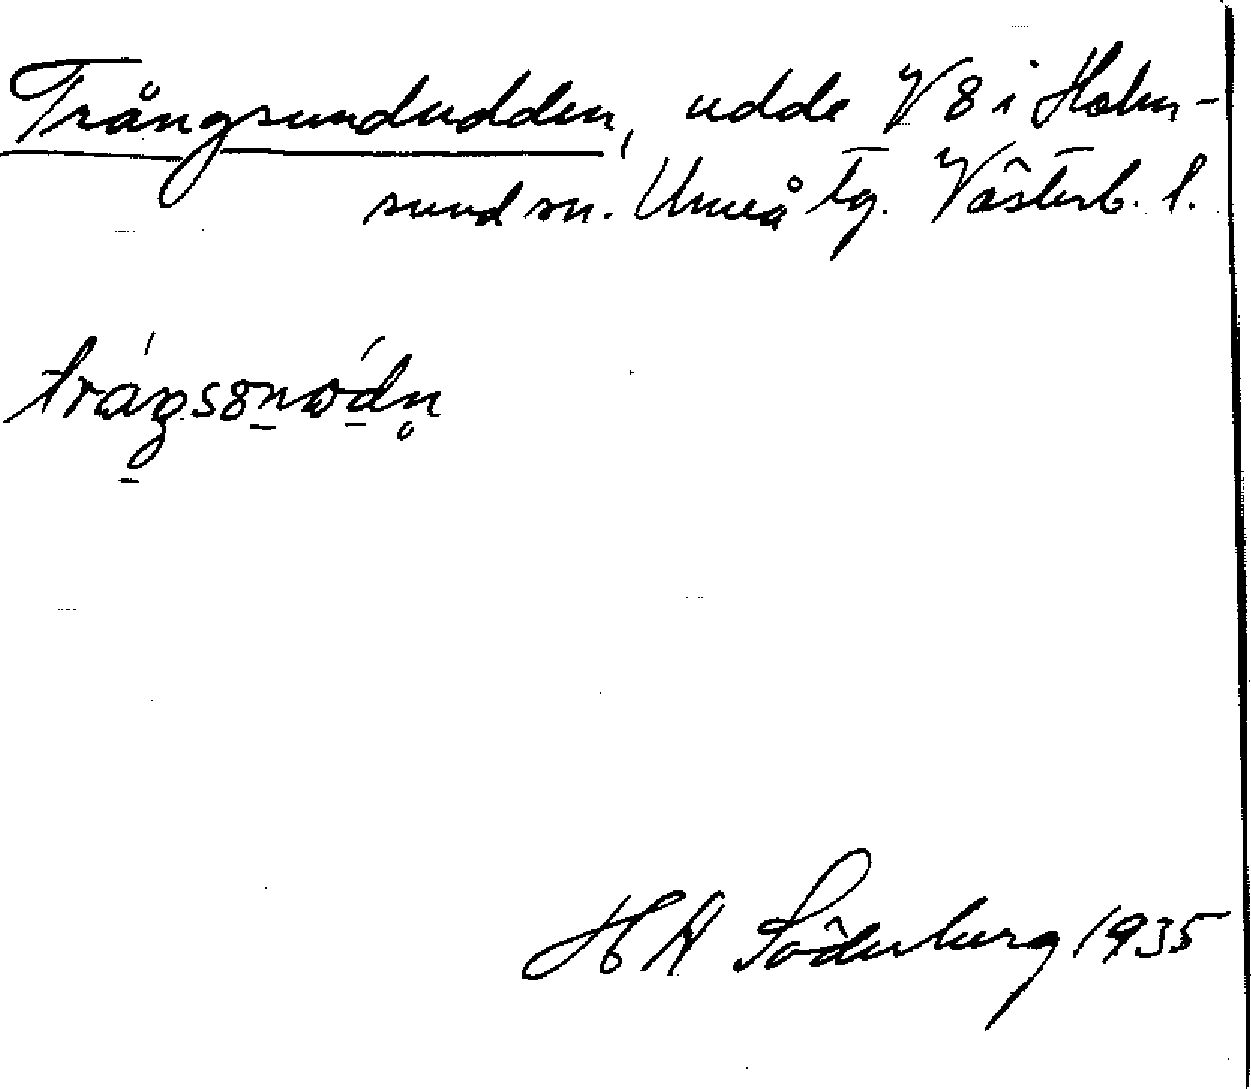 Trångsundudden, udde V 8 i Holm-
sund sn. Umeå tg. Västerb. l.
H A Söderberg 1935